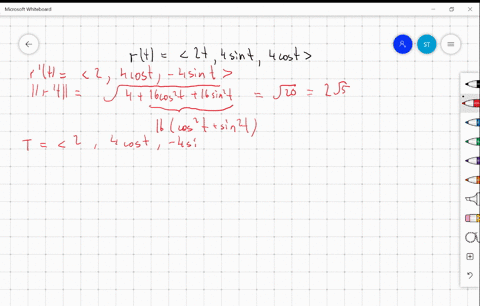 Microsoft Whiteboard
ST
r(t) = < 2t, 4 sin t, 4 cos t >
r'(t) = < 2, 4 cos t, -4 sin t >
||r't|| = √(4 + 16cos²t + 16 sin²t) = √20 = 2√5
16 (cos²t + sin²t)
T = < 2, 4 cos t, -4si